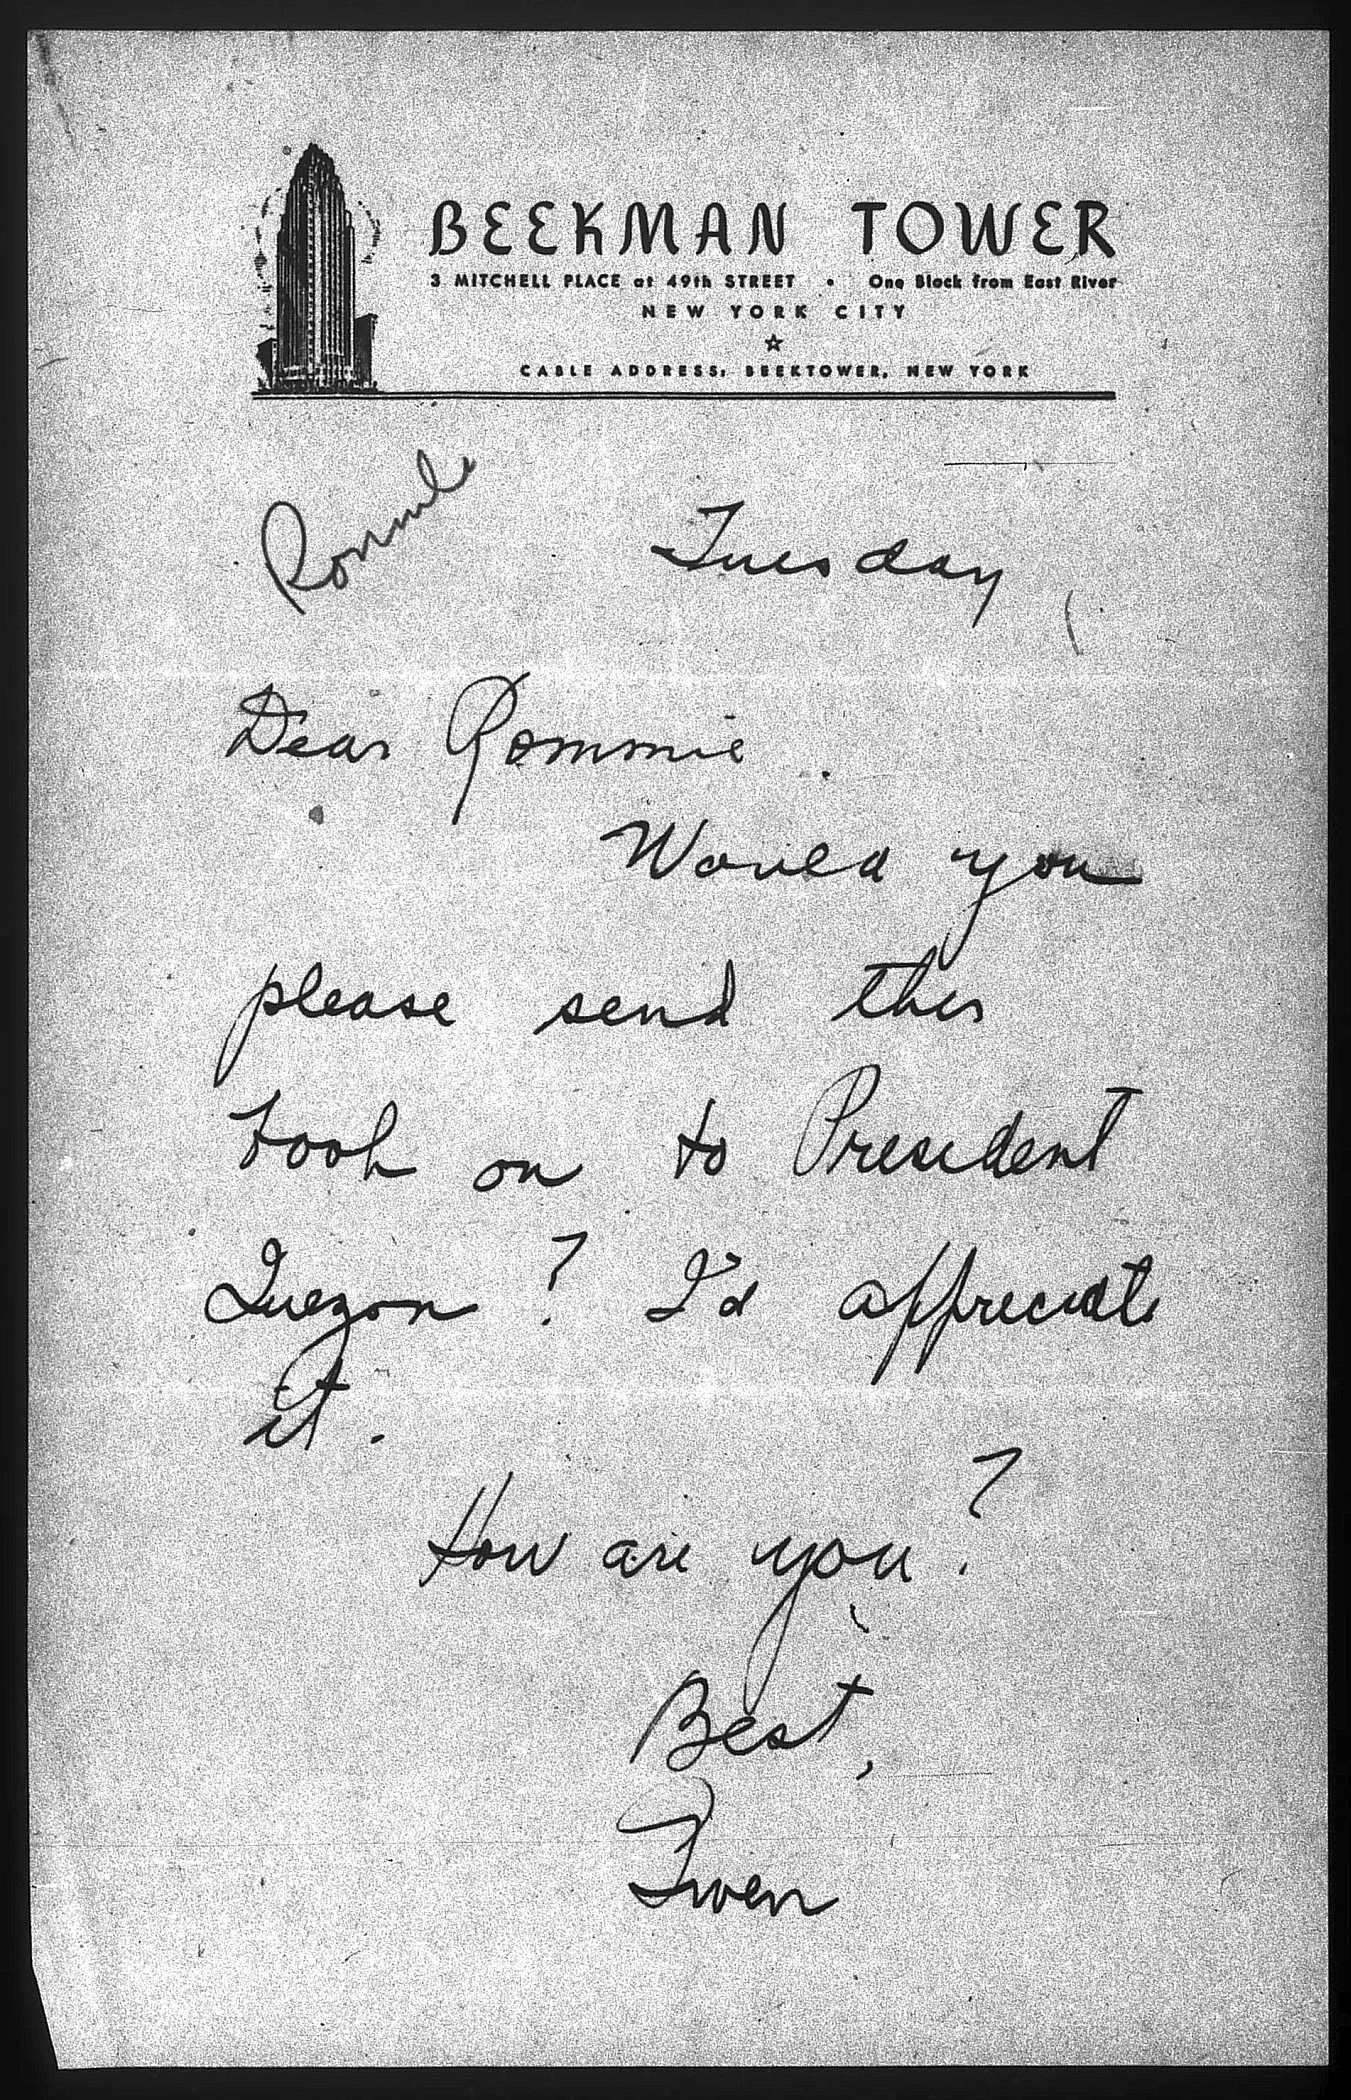 BEEKMAN TOWER
3 MITCHELL PLACE at 49th STREET • One Block from East River
NEW YORK CITY
☆
CABLE ADDRESS: BEEKTOWER, NEW YORK
Romulo
Tuesday
Dear Rommie.
Would you
please send this
book on to President
Quezon? I'd appreciate
it.
How are you?
Best,
Gwen